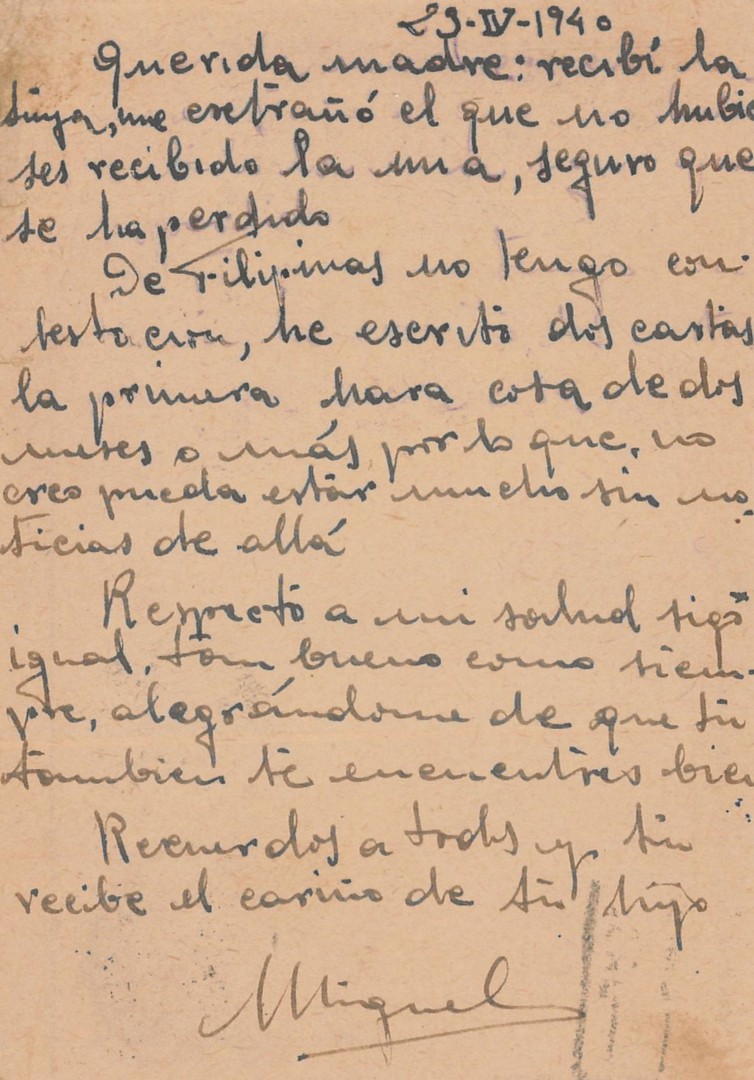 23-IV-1940
Querida madre: recibí la
tuya, me extrañó el que no hubie
ses recibido la mia, seguro que
se ha perdido
De Filipinas no tengo con-
testacion, he escrito dos cartas
la primera hara cosa de dos
meses o más, por lo que, no
creo pueda estar mucho sin no
ticias de allá
Respecto a mi salud sigo
igual, tan bueno como siem-
pre, alegrándome de que tu
tambien te encuentres bien
Recuerdos a todos y tu
recibe el cariño de tu hijo
Miguel